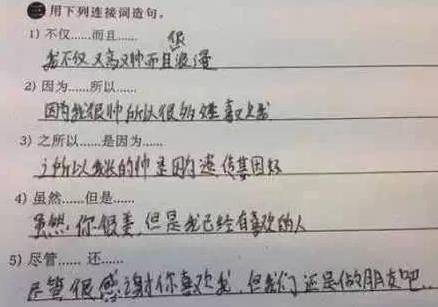 三 用下列连接词造句。
1) 不仅……而且……
我不仅又高又帅而且很浪漫
2) 因为……所以……
因为我很帅所以很多女生喜欢我
3) 之所以……是因为……
之所以我长的帅是因为遗传基因好
4) 虽然……但是……
虽然你很美,但是我已经有喜欢的人
5) 尽管…… 还……
尽管很感谢你喜欢我,但我们还是做朋友吧..